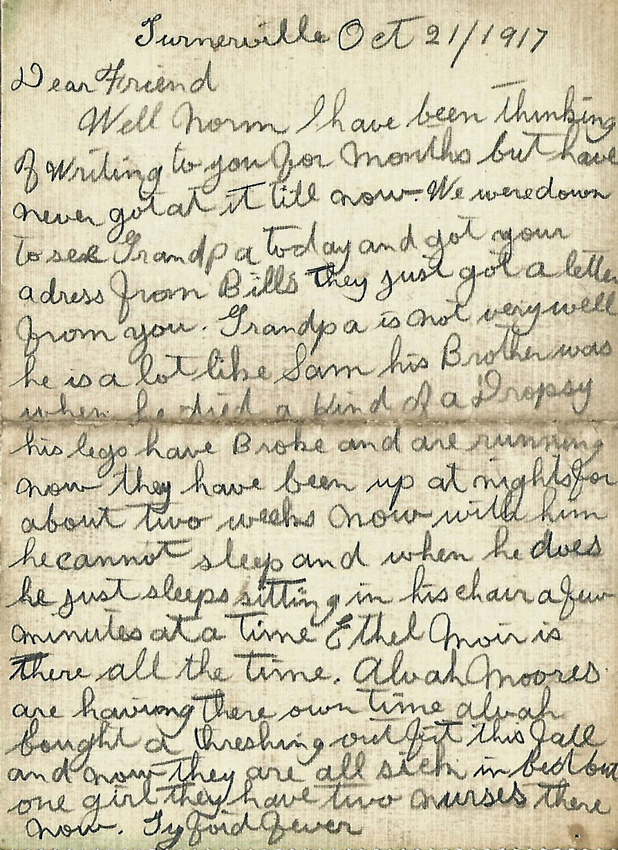 Turnerville Oct 21/1917
Dear Friend
Well Norm I have been thinking
of writing to you for months but have
never got at it till now. We were down
to see Grandpa today and got your
adress from Bills they just got a letter
from you. Grandpa is not very well
he is a lot like Sam his Brother was
when he died a kind of a Dropsy
his legs have Broke and are running
now they have been up at nights for
about two weeks now with him
he cannot sleep and when he does
he just sleeps sitting in his chair a few
minutes at a time Ethel Moir is
there all the time. Alvah Moores
are having there own time alvah
bought a threshing outfit this fall
and now they are all sick in bed but
one girl they have two nurses there
now. Tyfoid Fever